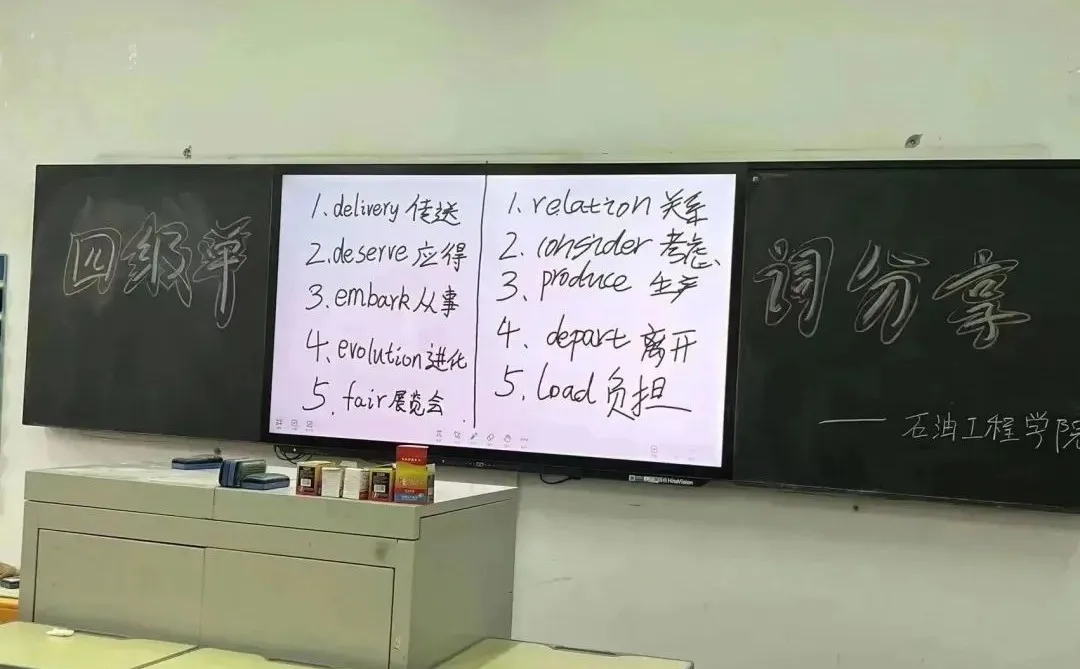 四级单
1. delivery 传送
2. deserve 应得
3. embark 从事
4. evolution 进化
5. fair 展览会
1. relation 关系
2. consider 考虑
3. produce 生产
4. depart 离开
5. load 负担
词分享
——石油工程学院
HiteVision